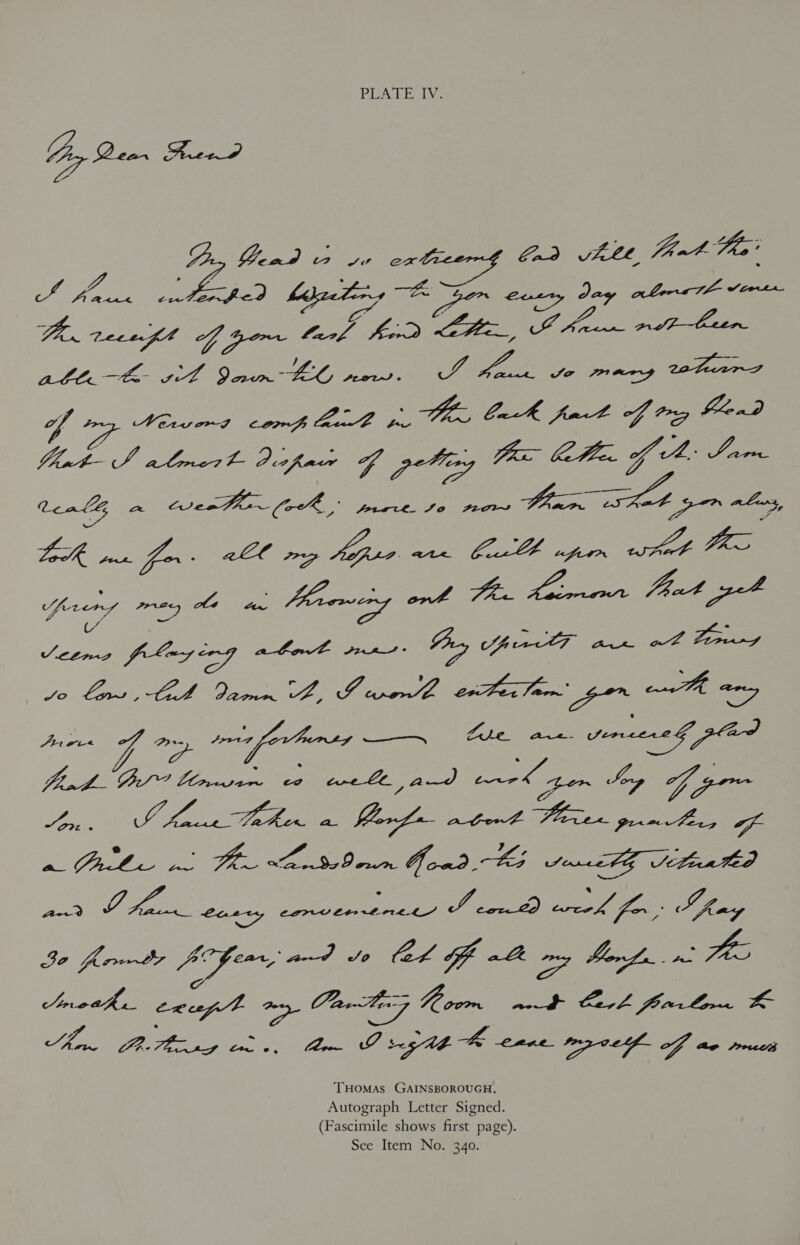 PLATE IV.
My Dear Friend
My Head is so extreemly bad still that tho'
I have intended Writing to you every day almost since
the receipt of your last kind Letter, I have not been
able to sit down till now. I have so many returns
of my Nervous complaint in the back part of my Head
that I almost dispair of getting the better of it: I am
really a Weather Cock; more so now than what you always
took me for. all my hopes are built upon what the
Spring may do in throwing out the humour that yet
seems playing about me. My Spirits are at times
so low, but damn it, I won't entertain you with any
more of my misfortunes —— We are sincerely glad
that Mrs Unwin is well, and wish you Joy of your
Son. I have Taken a House about Three quarters of
a Mile in the Lansdown Road, tis sweetly Situated
and I have every convenience I could wish for; I pay
30 pounds Pr Year; and so let off all my House in the
Smoake except my Painting Room and best parlour to
Show Pictures in. Am I right to ease myself of as much
THOMAS GAINSBOROUGH.
Autograph Letter Signed.
(Fascimile shows first page).
See Item No. 340.